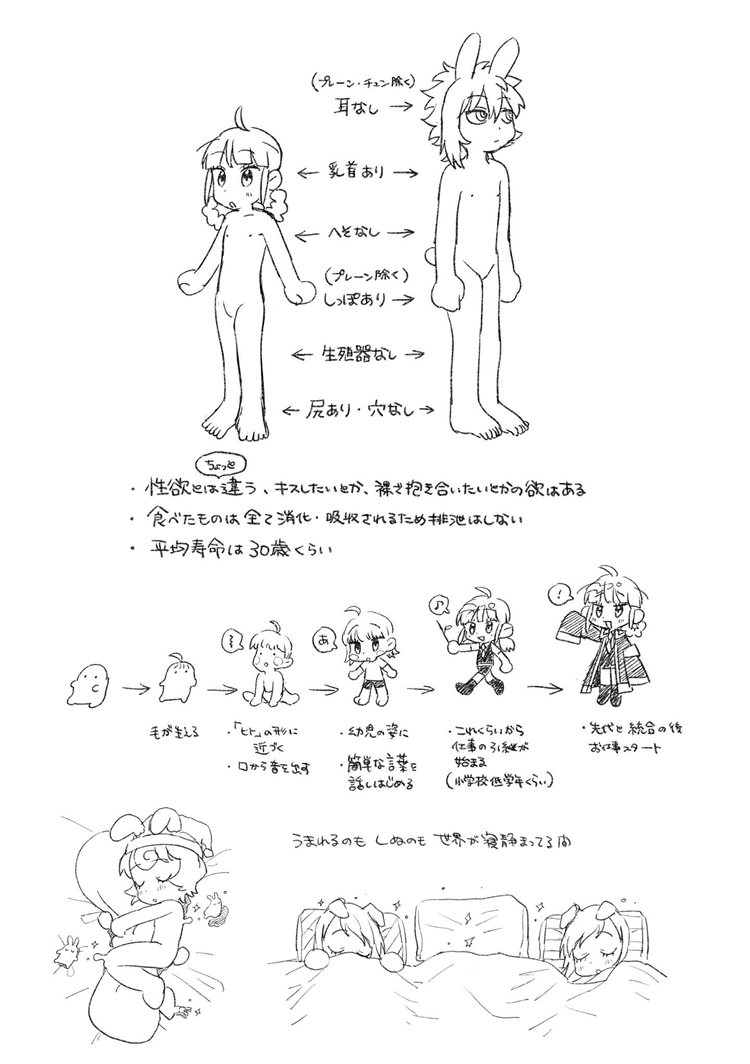 (プレーン・チュン除く)
耳なし →
← 乳首あり →
← へそなし →
(プレーン除く)
しっぽあり →
← 生殖器なし →
← 尻あり・穴なし →
ちょっと
・性欲とは違う、キスしたいとか、裸で抱き合いたいとかの欲はある
・食べたものは全て消化・吸収されるため排泄はしない
・平均寿命は30歳くらい
あ
♪
!
毛が生える
・「ヒト」の形に
近づく
・口から音を出す
・幼児の姿に
・簡単な言葉を
話しはじめる
・これくらいから
仕事の引継が
始まる
(小学校低学年くらい)
・先代と統合の後
お仕事スタート
うまれるのも しぬのも 世界が寝静まってる間